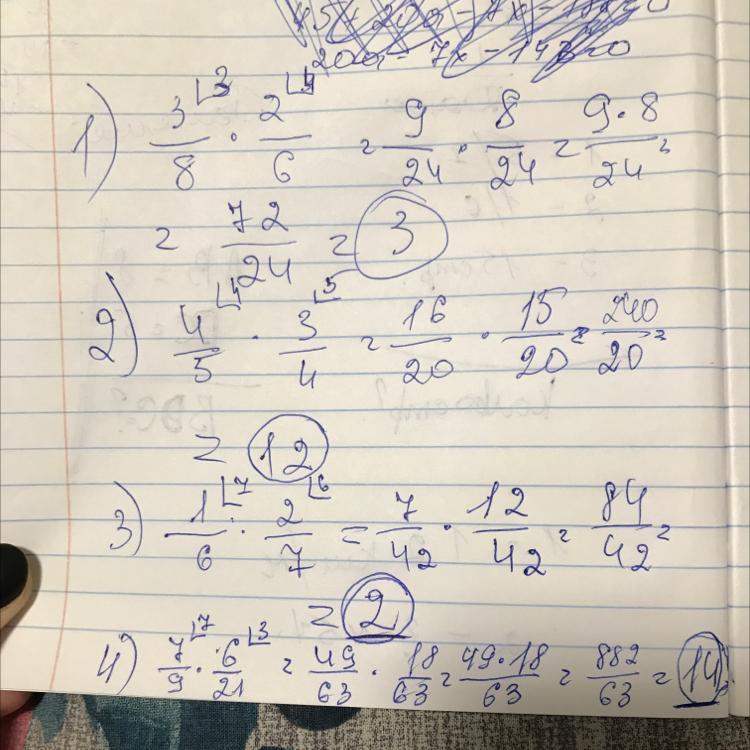 20a - 7x - 14
1) 3/8 ⌊3 · 2/6 ⌊4 = 9/24 · 8/24 = 9·8/24 =
= 72/24 = 3
2) 4/5 ⌊4 · 3/4 ⌊5 = 16/20 · 15/20 = 240/20 =
= 12
3) 1/6 ⌊7 · 2/7 ⌊6 = 7/42 · 12/42 = 84/42 =
= 2
4) 7/9 ⌊7 · 6/21 ⌊3 = 49/63 · 18/63 = 49·18/63 = 882/63 = 14